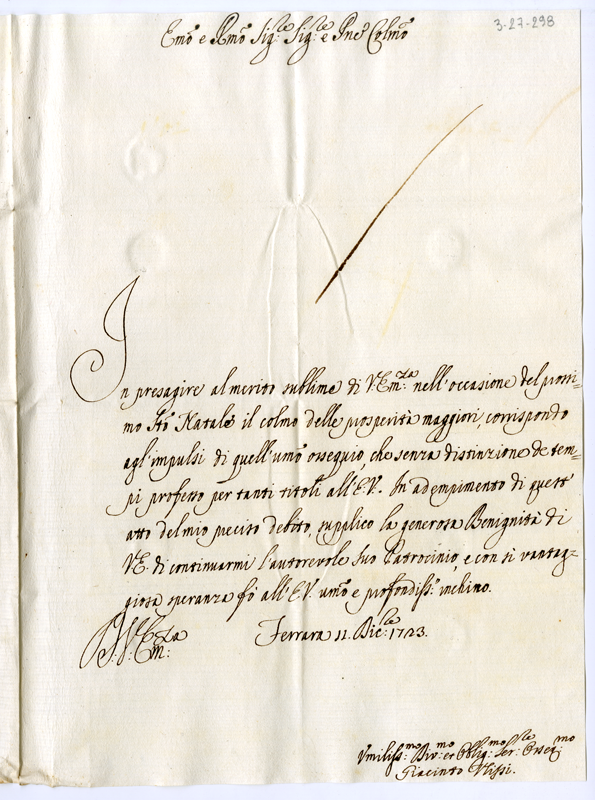 3-27-298
Emo e Rmo Sig:re Sig:re e Pne Colmo
In presagire al merito sublime di V.Em:za nell'occasione del prossi=
mo Sto Natale il colmo delle prosperità maggiori, corrispondo
agl'impulsi di quell'umo ossequio, che senza distinzione de tem=
pi professo per tanti titoli all'E.V. In adempimento di quest'
atto del mio preciso debito, supplico la generosa Benignità di
V.E. di continuarmi l'autorevole suo Patrocinio, e con sì vantag=
giosa speranza fò all'E.V. umo e profondiss:o inchino.
Ferrara 11. Dic:re 1723.
Umiliss:mo Div:mo et Oblig:mo Ser:re Osseq:mo
Giacinto